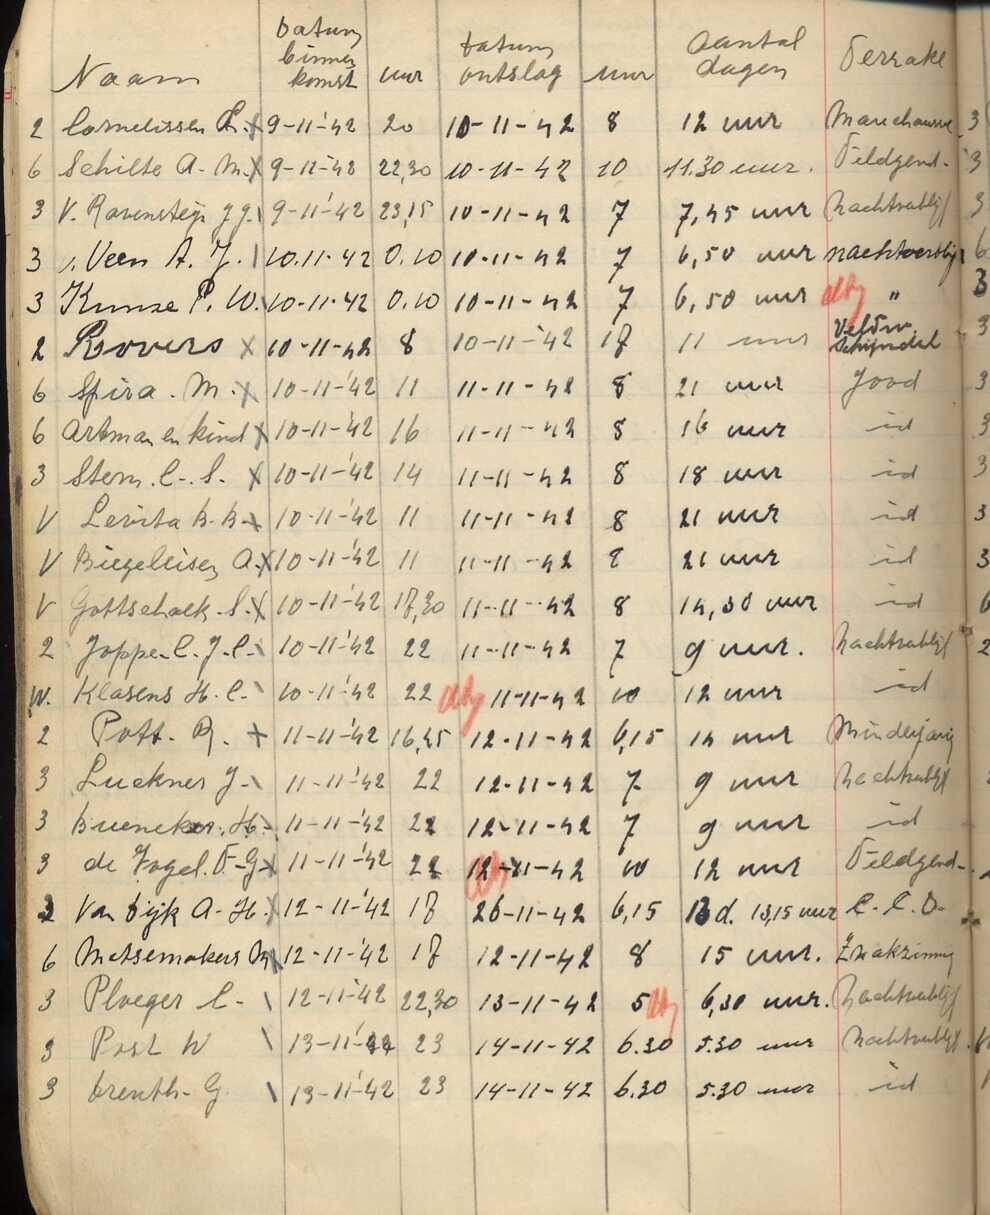 Naam Datum binnen komst uur Datum ontslag uur Aantal dagen Oorzake
2 Cornelissen L. x 9-11-'42 20 10-11-42 8 12 uur Marechaussee 3
6 Schilte A. M. x 9-11-'42 22,30 10-11-42 10 11.30 uur. Feldgend. 3
3 v. Ravensteijn J.J. \ 9-11-'42 23,15 10-11-42 7 7,45 uur Nachtverblijf 3
3 v. Veen A. J. \ 10.11-42 0.10 10-11-42 7 6,50 uur nachtverblijf 6
3 Kunze P. W. \ 10-11-42 0.10 10-11-42 7 6,50 uur " 3
2 Rovers x 10-11-42 8 10-11-'42 17 11 uur Veldw. Schijndel 3
6 Spira. M. x 10-11-'42 11 11-11-42 8 21 uur Jood 3
6 Artman en kind x 10-11-'42 16 11-11-'42 8 16 uur id 3
3 Stern. C. S. x 10-11-'42 14 11-11-42 8 18 uur id 3
V Levita B. B. x 10-11-'42 11 11-11-42 8 21 uur id 3
V Biegeleisen A. x 10-11-'42 11 11-11-42 8 21 uur id 3
V Gottschalk. S. x 10-11-'42 17,30 11-11-42 8 14,30 uur id 6
2 Joppe. C. J. C. \ 10-11-'42 22 11-11-42 7 9 uur. Nachtverblijf 2
W. Klasens H. C. \ 10-11-'42 22 11-11-42 10 12 uur id
2 Pott. R. x 11-11-'42 16,45 12-11-42 6,15 14 uur Minderjarig
3 Luckner J. \ 11-11-'42 22 12-11-42 7 9 uur Nachtverblijf
3 Bueneker. H. \ 11-11-'42 22 12-11-42 7 9 uur id
3 de Vogel. F. G. x 11-11-'42 22 12-11-42 10 12 uur Feldgend.
2 Van Dijk A. H. x 12-11-'42 17 26-11-42 6,15 13 d. 13,15 uur C. C. D.
6 Metsemakers M. x 12-11-'42 17 12-11-42 8 15 uur. Krankzinnig
3 Ploeger C. \ 12-11-'42 22,30 13-11-42 5 6,30 uur. Nachtverblijf
3 Post W \ 13-11-'42 23 14-11-42 6.30 5.30 uur Nachtverblijf
3 Drenth. G. \ 13-11-'42 23 14-11-42 6.30 5.30 uur id